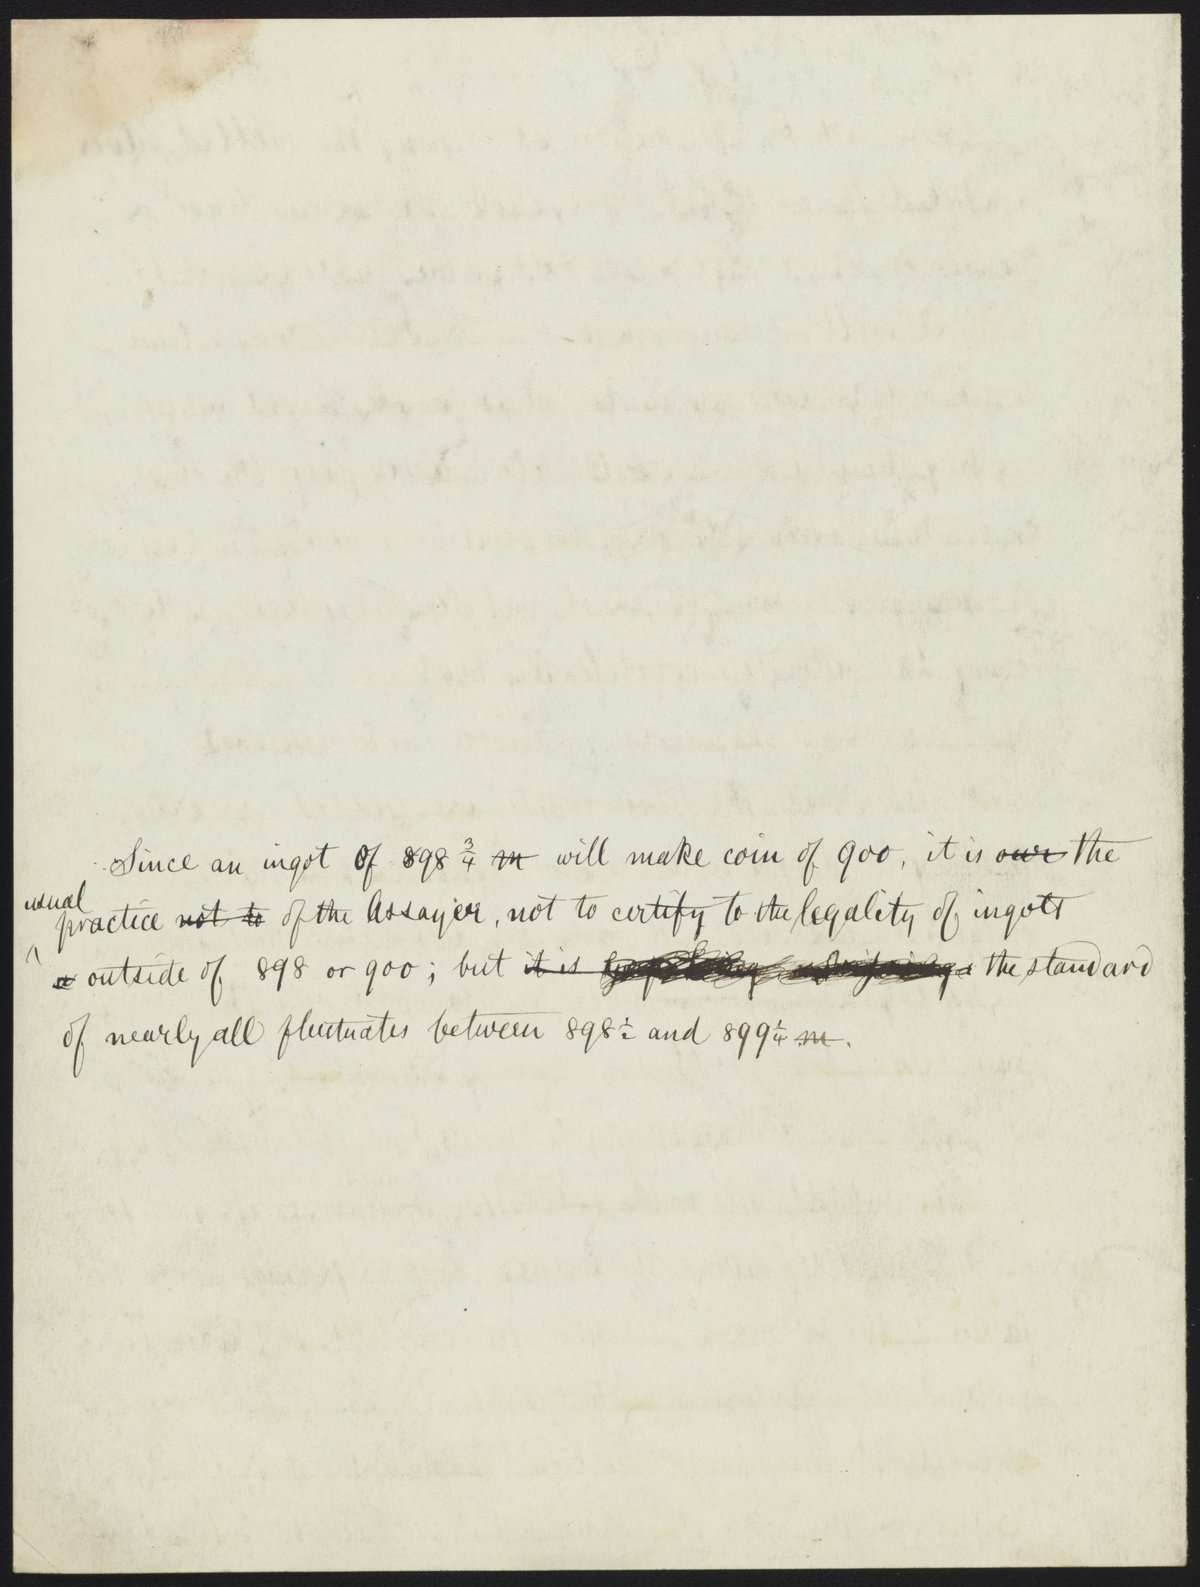 Since an ingot of 898 3/4 m will make coin of 900, it is our the
usual
practice not to of the Assayer, not to certify to the legality of ingots
a outside of 898 or 900; but it is the standard
of nearly all fluctuates between 898 1/2 and 899 1/4 m.